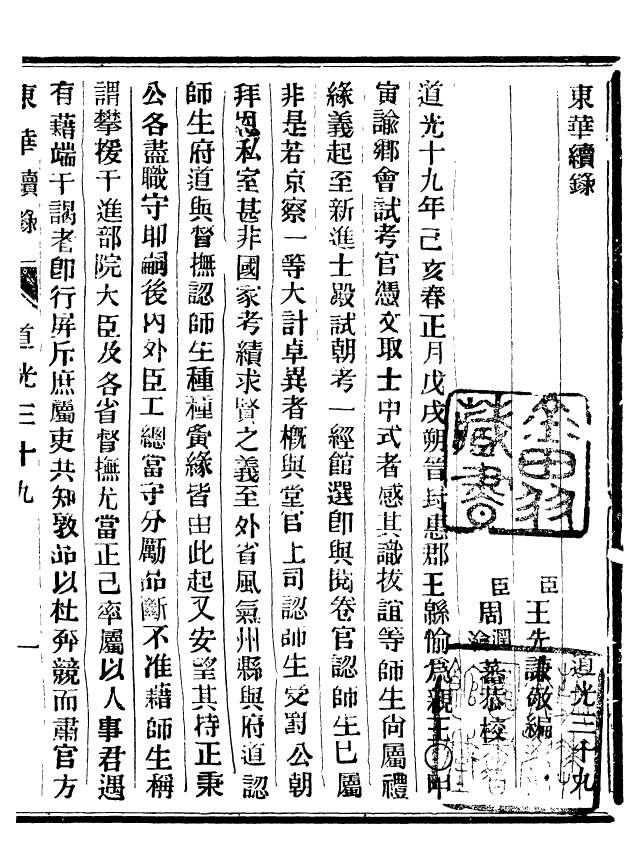 東華續錄 道光三十九
臣王先謙敬編
臣周潤瀹蕃恭校
道光十九年己亥春正月戊戌朔晉封惠郡王緜愉爲親王○甲
寅諭鄉會試考官憑文取士中式者感其識拔誼等師生尙屬禮
緣義起至新進士殿試朝考一經館選卽與閱卷官認師生已屬
非是若京察一等大計卓異者概與堂官上司認師生受爵公朝
拜恩私室甚非國家考績求賢之義至外省風氣州縣與府道認
師生府道與督撫認師生種種夤緣皆由此起又安望其持正秉
公各盡職守耶嗣後內外臣工總當守分勵品斷不准藉師生稱
謂攀援干進部院大臣及各省督撫尤當正己率屬以人事君遇
有藉端干謁者卽行屏斥庶屬吏共知敦品以杜奔競而肅官方
東華續錄 道光三十九 一
藏書